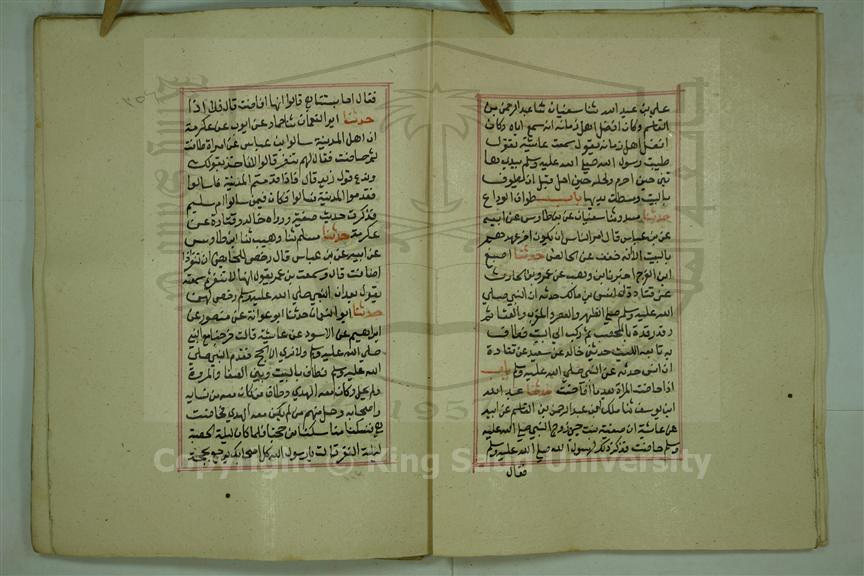 علي بن عبد الله ثنا سفيان ثنا عبد الرحمن بن
القاسم وكان افضل اهل زمانه انه سمع اباه وكان
افضل اهل زمانه يقول سمعت عائشة تقول
طيبت رسول الله صلي الله عليه وسلم بيدي هاتين
حين احرم ولحله حين احل قبل ان يطوف
بالبيت وبسطت يديها باب طواف الوداع
حدثنا مسدد ثنا سفيان عن بن طاوس عن ابيه
عن بن عباس قال امر الناس ان يكون اخر عهدهم
بالبيت الا انه خفف عن الحائض حدثنا اصبغ
ابن الفرج اخبرنا بن وهب عن عمرو بن الحارث
عن قتادة ان انس بن مالك حدثه ان النبي صلي
الله عليه وسلم صلي الظهر والعصر والمغرب والعشا ثم
رقد رقدة بالمحصب ثم ركب الي البيت فطاف
به تابعه الليث حدثني خالد عن سعيد عن قتادة
ان انس حدثه عن النبي صلي الله عليه وسلم باب
اذا حاضت المراة بعد ما افاضت حدثنا عبد الله
ابن يوسف ثنا ملك عن عبد الرحمن بن القاسم عن ابيه
عن عائشة ان صفية بنت حيي زوج النبي صلي الله عليه
وسلم حاضت فذكرت ذلك لرسول الله صلي الله عليه وسلم
فقال
فقال احابستنا هي قالوا انها افاضت قال فلا اذا
حدثنا ابو النعمان ثنا حماد عن ايوب عن عكرمة
ان اهل المدينة سالوا بن عباس عن امراة طافت
ثم حاضت فقال لهم تنفر قالوا لا ناخذ بقولك
وندع قول زيد قال فاذا قدمتم المدينة فاسالوا
فقدموا المدينة فسالوا فكان فيمن سالوا ام سليم
فذكرت حديث صفية ورواه خالد وقتادة عن
عكرمة حدثنا مسلم ثنا وهيب ثنا ابن طاوس
عن ابيه عن بن عباس قال رخص للحائض ان تنفر اذا
افاضت قال وسمعت بن عمر يقول انها لا تنفر ثم سمعته
يقول بعد ان النبي صلي الله عليه وسلم رخص لهن
حدثنا ابو النعمان حدثنا ابو عوانة عن منصور عن
ابراهيم عن الاسود عن عائشة قالت خرجنا مع النبي
صلي الله عليه وسلم ولا نري الا الحج فقدم النبي صلي
الله عليه وسلم فطاف بالبيت وبين الصفا والمروة
ولم يحل وكان معه الهدي وطاف من كان معه من نسايه
واصحابه وحل منهم من لم يكن معه الهدي فحاضت
هي فنسكنا مناسكنا من حجنا فلما كان ليلة الحصبة
ليلة النفر قالت يا رسول الله كل اصحابك يرجع بحجة
1957
Copyright © King Saud University